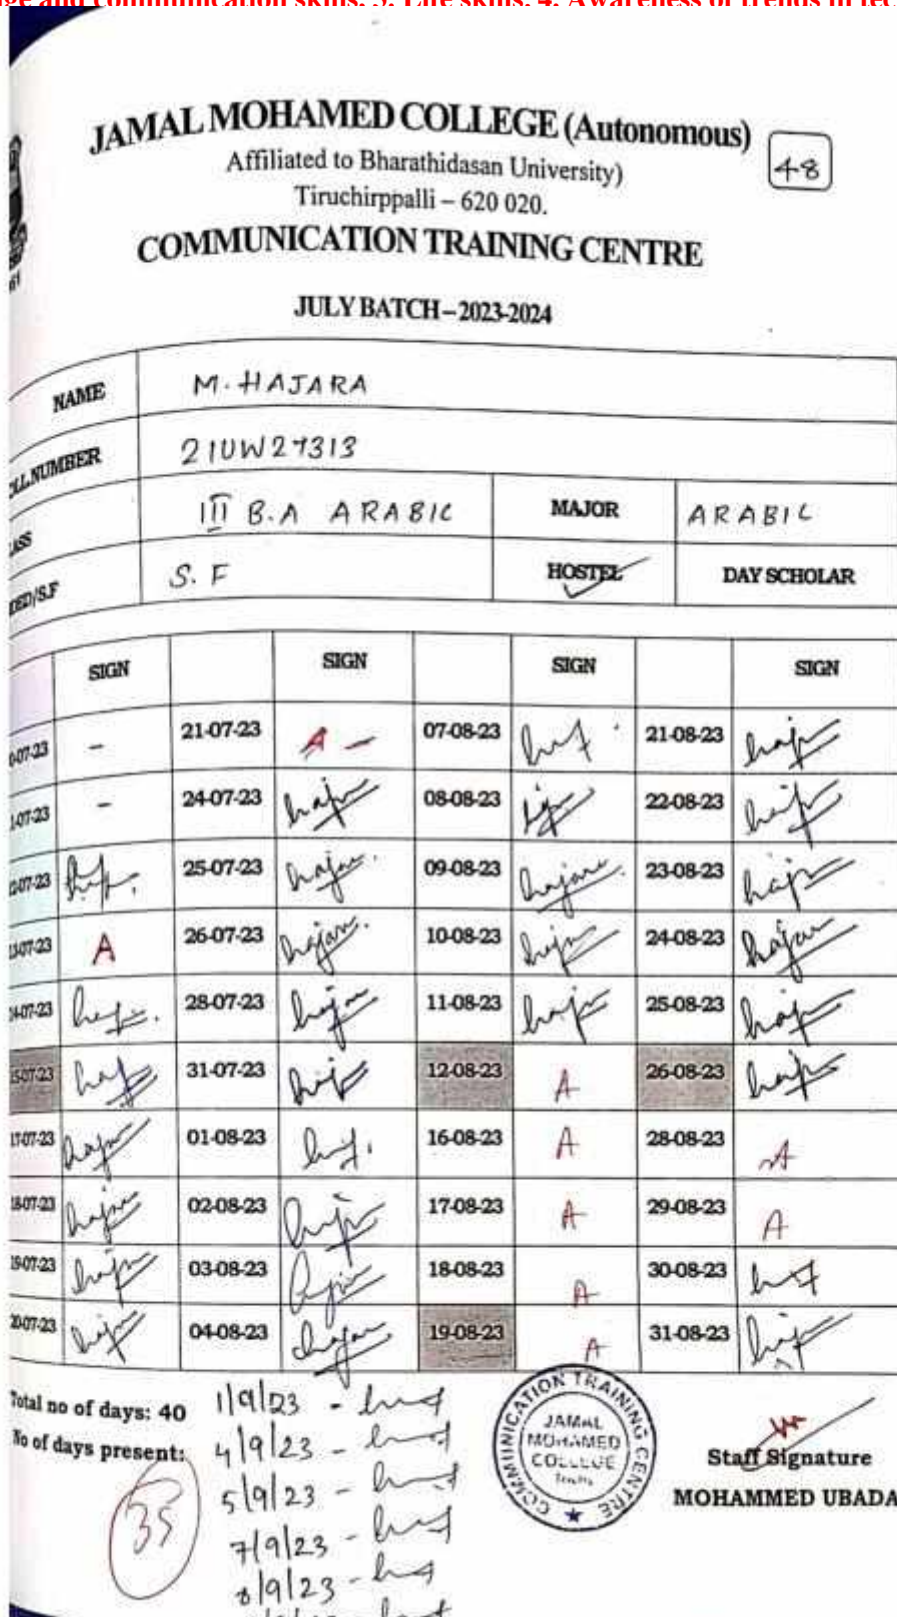 ge and communication skills. 3. Life skills. 4. Awareness of trends in tec
JAMAL MOHAMED COLLEGE (Autonomous)
48
Affiliated to Bharathidasan University)
Tiruchirppalli – 620 020.
COMMUNICATION TRAINING CENTRE
JULY BATCH – 2023-2024
NAME M. HAJARA
LL NUMBER 21UW27313
ASS III B.A ARABIC MAJOR ARABIC
DED/S.F S. F HOSTEL DAY SCHOLAR
SIGN SIGN SIGN SIGN
0-07-23 – 21-07-23 A – 07-08-23 21-08-23
1-07-23 – 24-07-23 hajar 08-08-23 22-08-23
2-07-23 25-07-23 hajar 09-08-23 hajara 23-08-23
13-07-23 A 26-07-23 hajar 10-08-23 24-08-23 hajar
14-07-23 28-07-23 hajar 11-08-23 25-08-23
15-07-23 31-07-23 12-08-23 A 26-08-23
17-07-23 hajar 01-08-23 16-08-23 A 28-08-23 A
18-07-23 hajar 02-08-23 17-08-23 A 29-08-23 A
19-07-23 03-08-23 18-08-23 A 30-08-23
20-07-23 04-08-23 hajar 19-08-23 A 31-08-23
Total no of days: 40
No of days present: 35
1/9/23 -
4/9/23 -
5/9/23 -
7/9/23 -
8/9/23 -
COMMUNICATION TRAINING CENTRE
JAMAL
MOHAMED
COLLEGE
Staff Signature
MOHAMMED UBADA